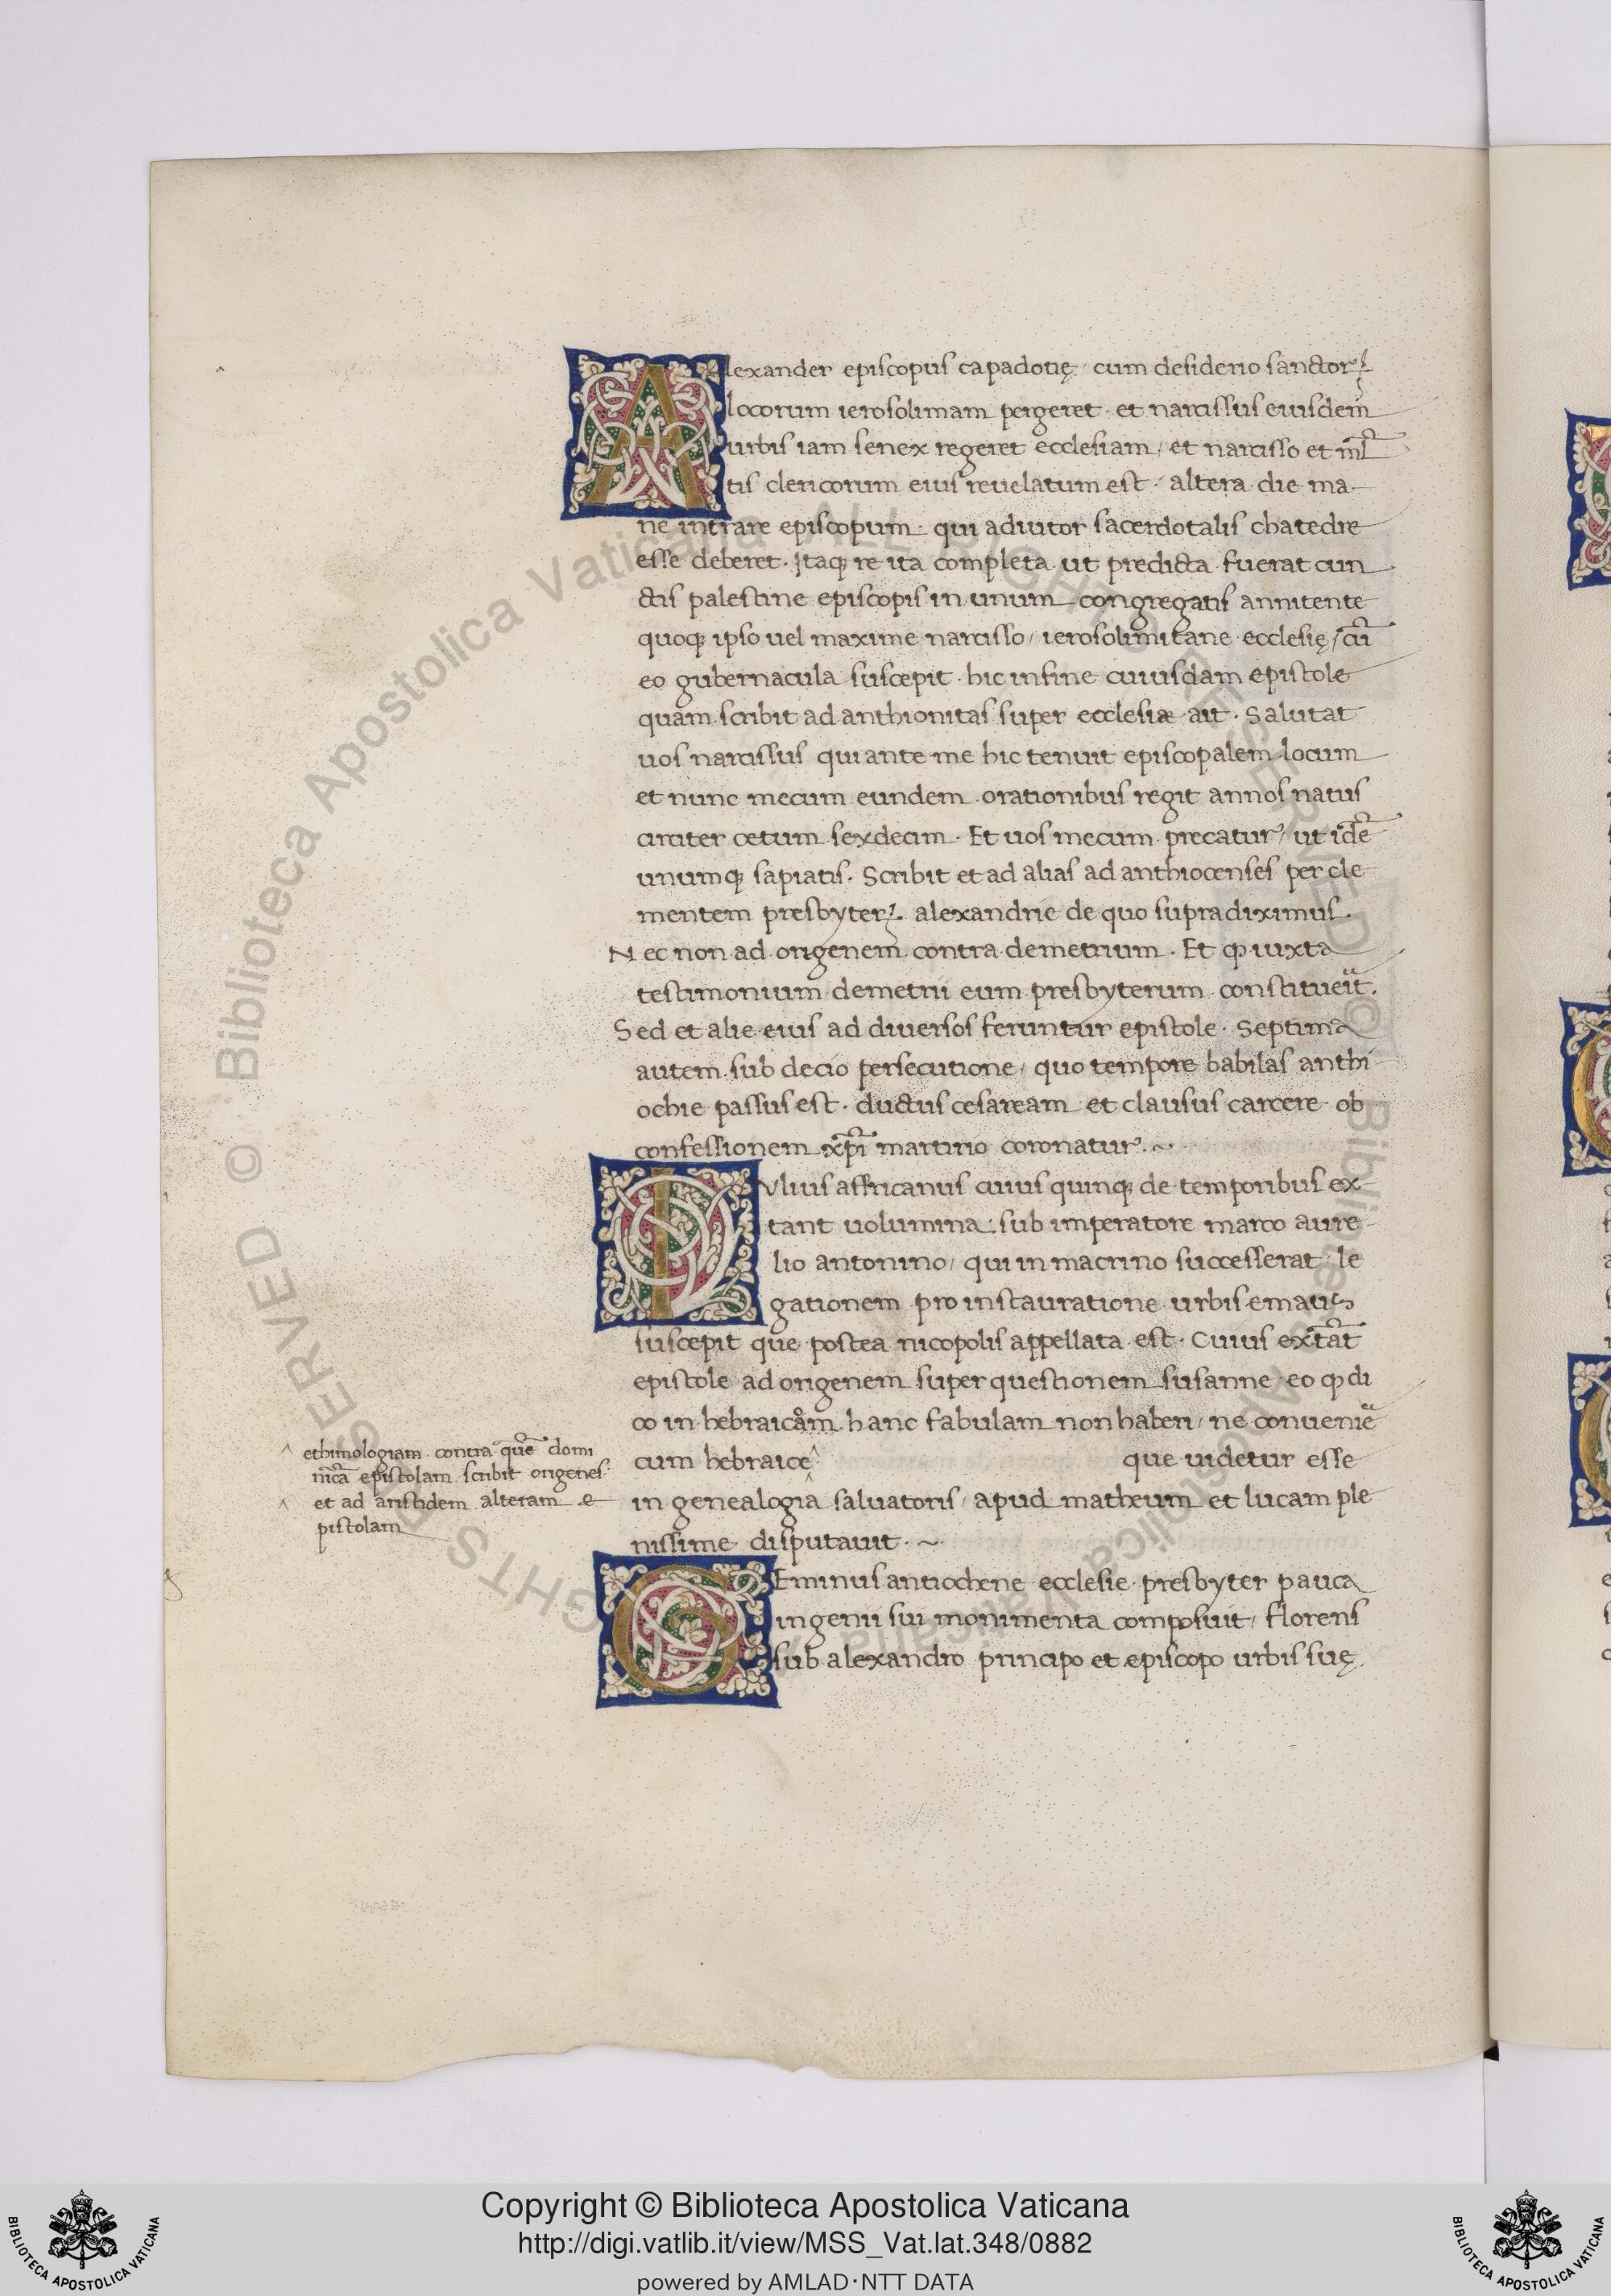 Alexander episcopus capadotię / cum desiderio sanctorꝝ
locorum ierosolimam pergeret · et narcissus eiusdem
urbis iam senex regeret ecclesiam / et narcisso et ml̃
tis clericorum eius reuelatum est · altera die ma-
ne intrare episcopum · qui adiutor sacerdotalis chatedre
esse deberet · Itaqꝫ re ita completa ut predicta fuerat cun
ctis palestine episcopis in unum congregatis annitente
quoqꝫ ipso uel maxime narcisso / ierosolimitane ecclesię / cũ
eo gubernacula suscepit · hic in fine cuiusdam epistole
quam scribit ad anthionitas super ecclesiæ ait · Salutat
uos narcissus qui ante me hic tenuit episcopalem locum
et nunc mecum eundem orationibus regit annos natus
circiter cetum sexdecim · Et uos mecum precatur / ut idẽ
unumqꝫ sapiatis · Scribit et ad alias ad anthiocenses per cle
mentem presbyterꝝ alexandrie de quo supra diximus ·
Nec non ad origenem contra demetrium · Et ꝙ iuxta
testimonium demetrii eum presbyterum constitueãt ·
Sed et alie eius ad diuersos feruntur epistole · Septima
autem sub decio persecutione / quo tempore babilas anthi
ochie passus est · ductus cesaream et clausus carcere ob
confessionem xp̃i martirio coronatur · ~
IVlius affricanus cuius quinqꝫ de temporibus ex-
tant uolumina : sub imperatore marco aure-
lio antonino / qui in macrino successerat · le
gationem pro instauratione urbis emaus
suscepit que postea nicopolis appellata est · Cuius extãt
epistole ad origenem super questionem susanne · eo ꝙ di
co in hebraicam hanc fabulam non haberi / ne conueniẽ
cum hebraice ^ que uidetur esse
^ ethimologiam contra quẽ domi
nicã epistolam scribit origenes ·
^ et ad aristidem alteram e
pistolam
in genealogia saluatoris / apud matheum et lucam ple
nissime disputauit · ~
GEminus antiochene ecclesie presbyter pauca
ingenii sui monimenta composuit / florens
sub alexandro principo et episcopo urbis suę ·
Copyright © Biblioteca Apostolica Vaticana
http://digi.vatlib.it/view/MSS_Vat.lat.348/0882
powered by AMLAD·NTT DATA
BIBLIOTECA APOSTOLICA VATICANA
BIBLIOTECA APOSTOLICA VATICANA